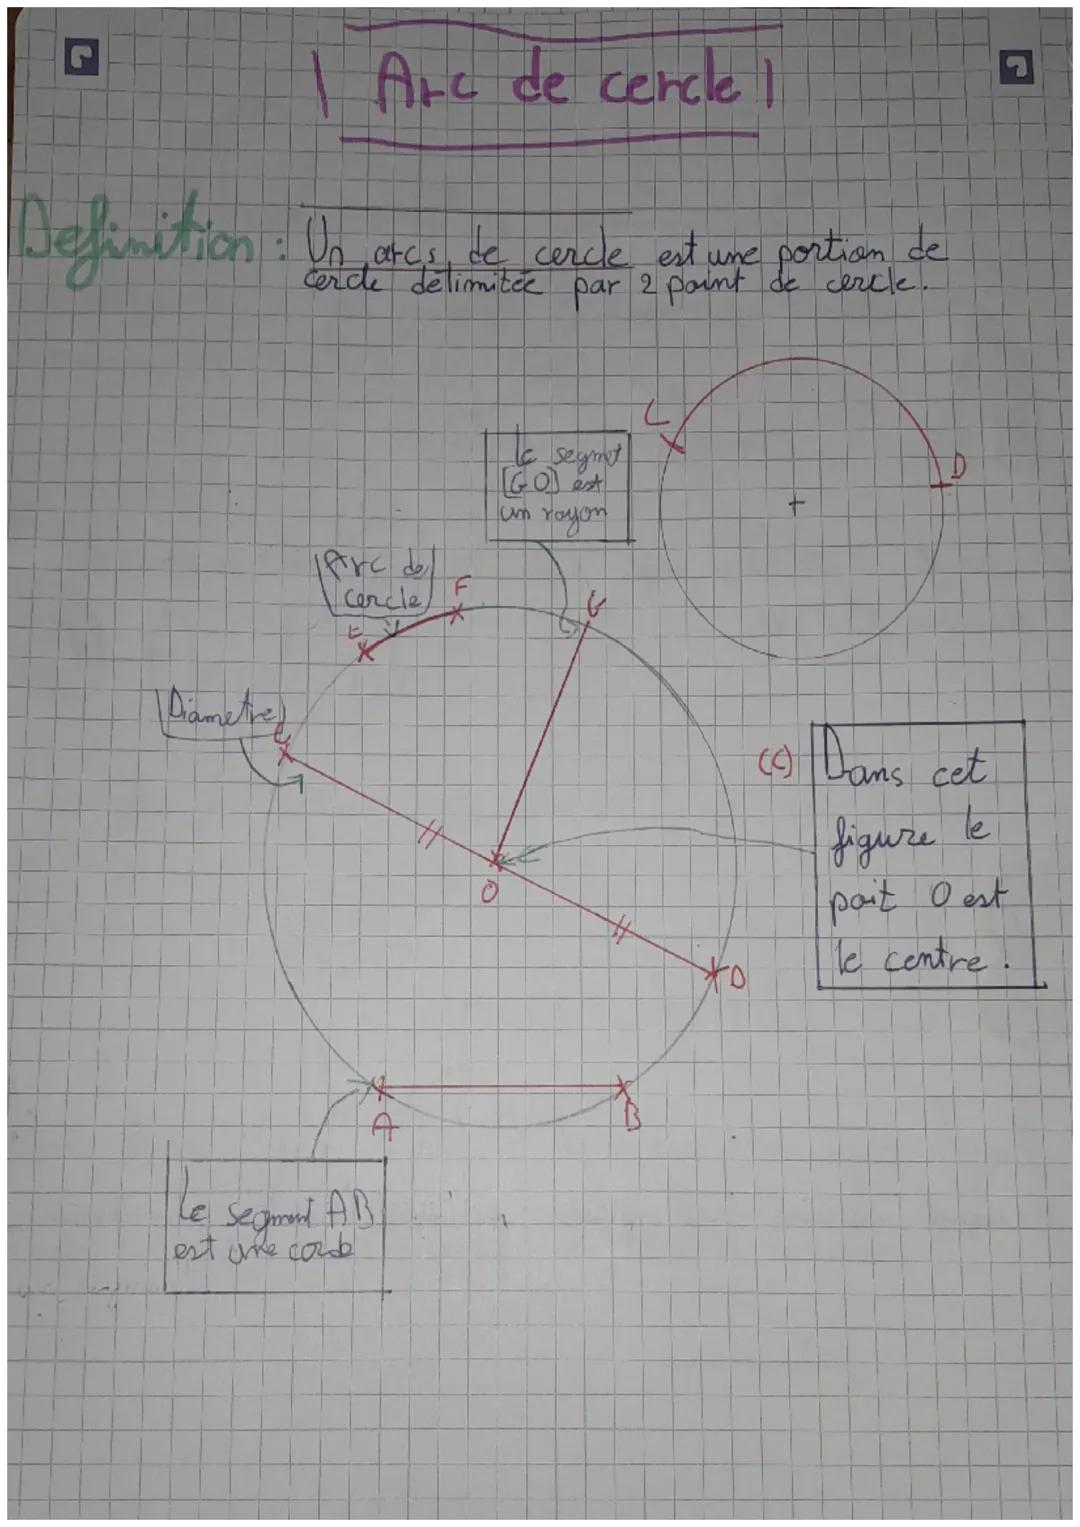 Arc de cercle
Definition : Un arcs de cercle est une portion de
cercle délimitée par 2 point de cercle.
C
D
le segmet
[GO] est
un rayon
Arc de
cercle
F
E
G
Diametre
C
(C)
Dans cet
figure le
poit O est
le centre.
O
D
A
B
Le segment AB
est une corde